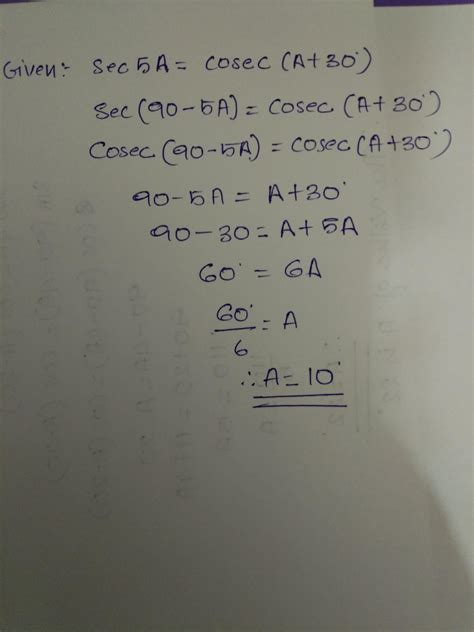 Given:- Sec 5A = Cosec (A+30°)
Sec (90-5A) = Cosec (A+30°)
Cosec (90-5A) = Cosec (A+30°)
90-5A = A+30°
90-30 = A+5A
60° = 6A
60°/6 = A
∴ A = 10°